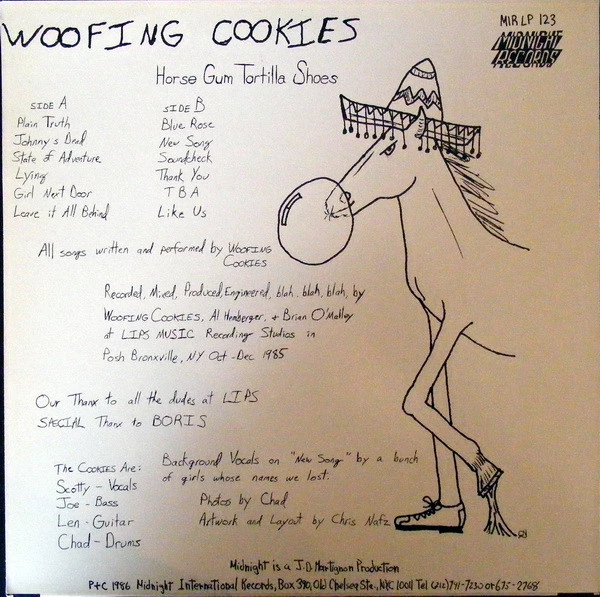 WOOFING COOKIES
MIRLP 123
MIDNIGHT
RECORDS
Horse Gum Tortilla Shoes
SIDE A
Plain Truth
Johnny's Dead
State of Adventure
Lying
Girl Next Door
Leave it All Behind
SIDE B
Blue Rose
New Song
Soundcheck
Thank You
TBA
Like Us
All songs written and performed by WOOFING
COOKIES
Recorded, Mixed, Produced, Engineered, blah, blah, blah, by
WOOFING COOKIES, Al Hemberger, + Brian O'Malley
at LIPS MUSIC Recording Studios in
Posh Bronxville, NY Oct-Dec 1985
Our Thanx to all the dudes at LIPS
SPECIAL Thanx to BORIS
The COOKIES Are:
Scotty - Vocals
Joe - Bass
Len - Guitar
Chad - Drums
Background Vocals on "New Song" by a bunch
of girls whose names we lost.
Photos by Chad
Artwork and Layout by Chris Nafz
Midnight is a J.D. Martignon Production
P+C 1986 Midnight International Records, Box 390, Old Chelsea Sta., NYC 10011 Tel (212) 741-7230 or 675-2768